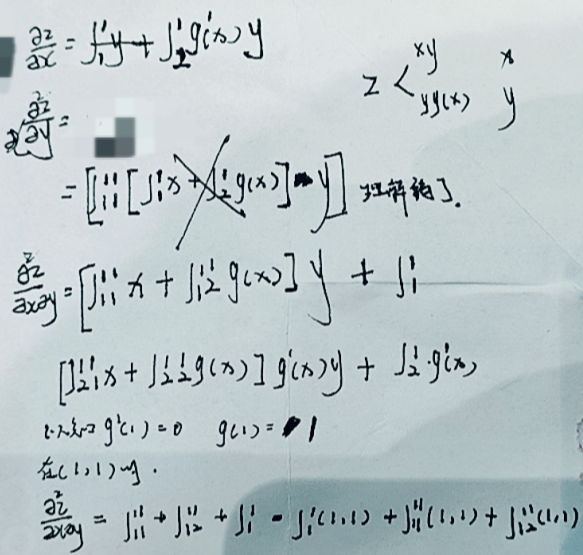 ∂z/∂x = f₁'y + f₂'g'(x)y
z < xy x
yg(x) y
∂²z/∂y =
= [f₁₁''[f₁'x + f₂'g(x)] y] 理解错了.
∂²z/∂x∂y = [f₁₁''x + f₁₂''g(x)]y + f₁'
[f₂₁''x + f₂₂''g(x)]g'(x)y + f₂'·g'(x)
g'(1)=0 g(1)=1
在(1,1)时.
∂²z/∂x∂y = f₁₁'' + f₁₂'' + f₁' = f₁'(1,1) + f₁₁''(1,1) + f₁₂''(1,1)